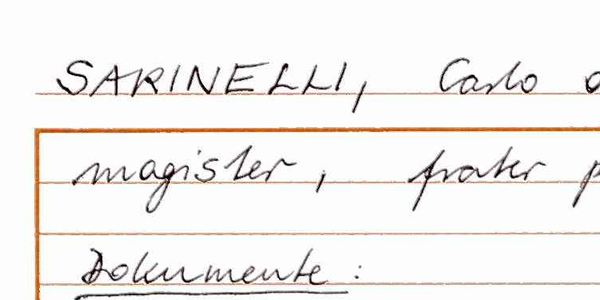 SARINELLI, Carlo
magister, frater
Dokumente: